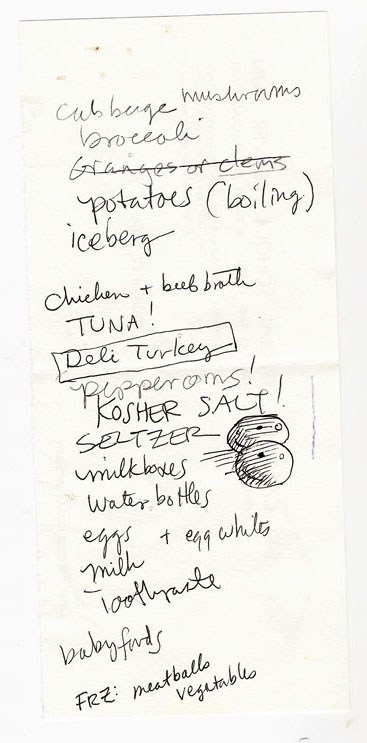 cabbage mushrooms
broccoli
Oranges or clems
potatoes (boiling)
iceberg
chicken + beef broth
TUNA!
Deli Turkey
pepperoni!
KOSHER SALT!
SELTZER
milkboxes
Water bottles
eggs + egg whites
milk
Toothpaste
babyfoods
FRZ: meatballs
vegetables